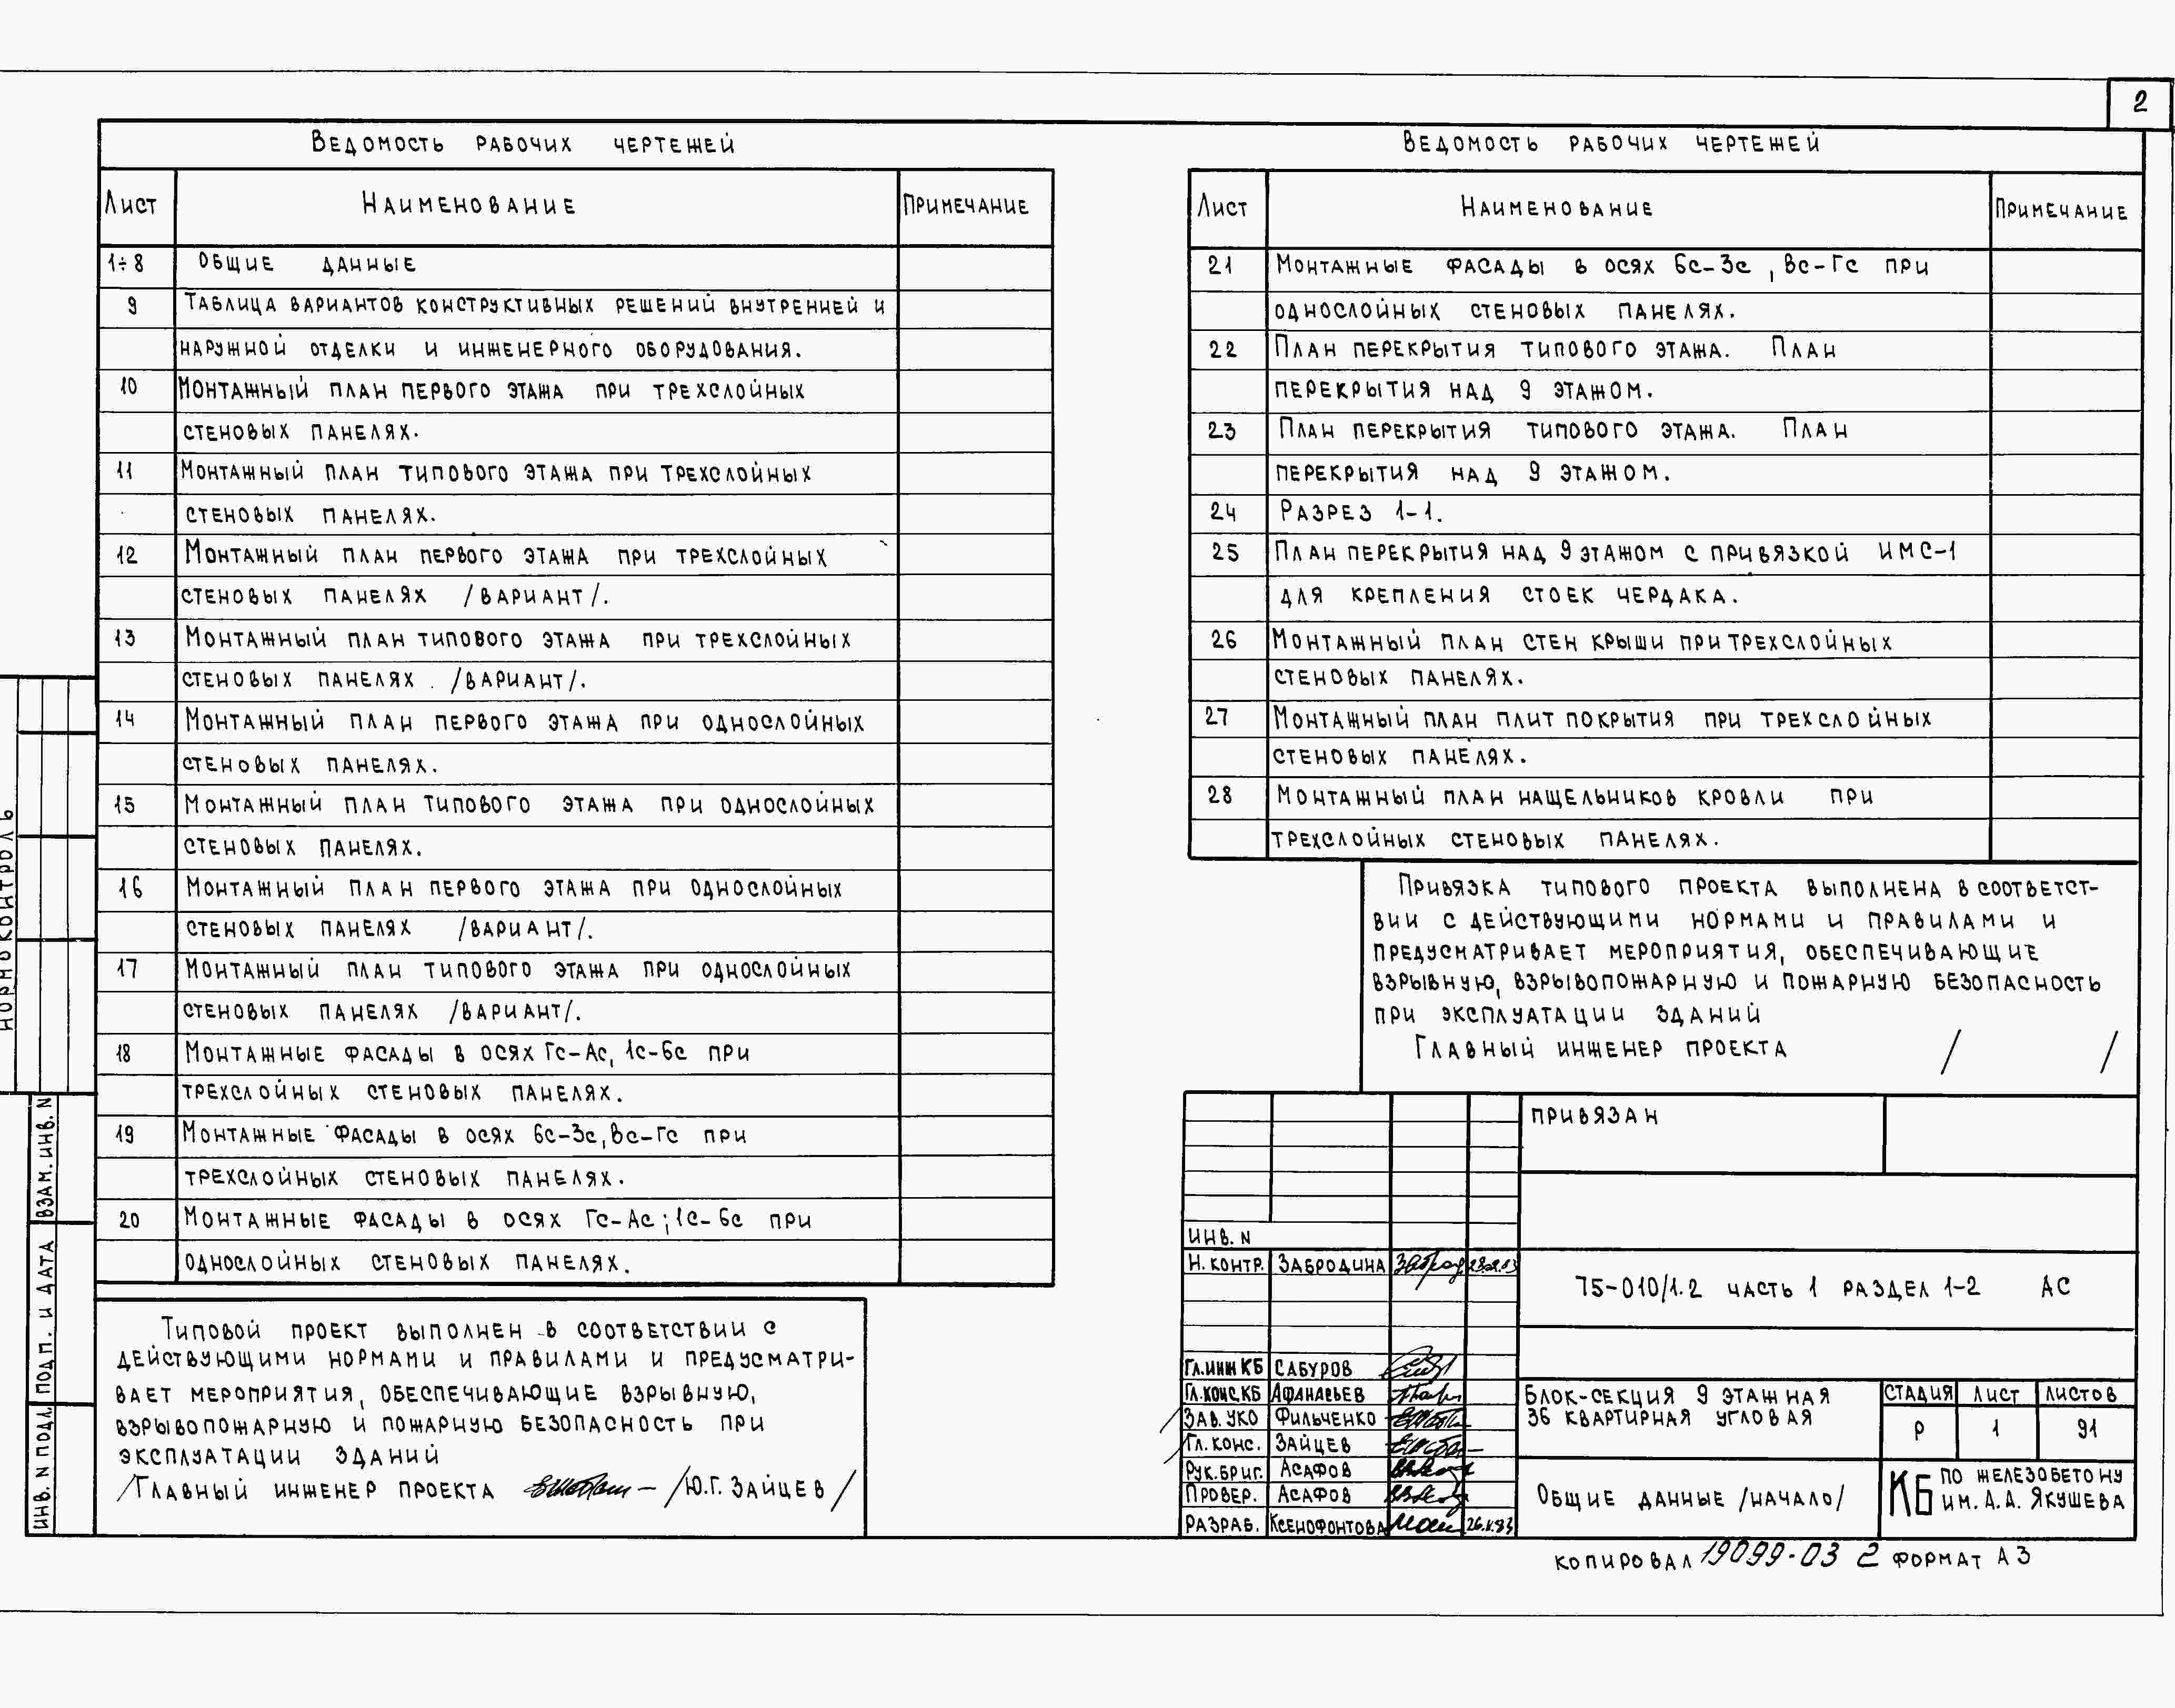 2
Ведомость рабочих чертежей
Лист Наименование Примечание
1÷8 Общие данные
9 Таблица вариантов конструктивных решений внутренней и
наружной отделки и инженерного оборудования.
10 Монтажный план первого этажа при трехслойных
стеновых панелях.
11 Монтажный план типового этажа при трехслойных
стеновых панелях.
12 Монтажный план первого этажа при трехслойных
стеновых панелях /вариант/.
13 Монтажный план типового этажа при трехслойных
стеновых панелях /вариант/.
14 Монтажный план первого этажа при однослойных
стеновых панелях.
15 Монтажный план типового этажа при однослойных
стеновых панелях.
16 Монтажный план первого этажа при однослойных
стеновых панелях /вариант/.
17 Монтажный план типового этажа при однослойных
стеновых панелях /вариант/.
18 Монтажные фасады в осях Гс-Ас, 1с-6с при
трехслойных стеновых панелях.
19 Монтажные фасады в осях 6с-3с, Вс-Гс при
трехслойных стеновых панелях.
20 Монтажные фасады в осях Гс-Ас; 1с-6с при
однослойных стеновых панелях.
Типовой проект выполнен в соответствии с
действующими нормами и правилами и предусматри-
вает мероприятия, обеспечивающие взрывную,
взрывопожарную и пожарную безопасность при
эксплуатации зданий
/Главный инженер проекта /Ю.Г. Зайцев/
Ведомость рабочих чертежей
Лист Наименование Примечание
21 Монтажные фасады в осях 6с-3с, Вс-Гс при
однослойных стеновых панелях.
22 План перекрытия типового этажа. План
перекрытия над 9 этажом.
23 План перекрытия типового этажа. План
перекрытия над 9 этажом.
24 Разрез 1-1.
25 План перекрытия над 9 этажом с привязкой ИМС-1
для крепления стоек чердака.
26 Монтажный план стен крыши при трехслойных
стеновых панелях.
27 Монтажный план плит покрытия при трехслойных
стеновых панелях.
28 Монтажный план нащельников кровли при
трехслойных стеновых панелях.
Привязка типового проекта выполнена в соответст-
вии с действующими нормами и правилами и
предусматривает мероприятия, обеспечивающие
взрывную, взрывопожарную и пожарную безопасность
при эксплуатации зданий
Главный инженер проекта / /
Привязан
Инв. N
Н. контр. Забродина
75-010/1.2 часть 1 раздел 1-2 АС
Гл.инж КБ Сабуров
Гл.конс.КБ Афанасьев
Зав. УКО Фильченко
Гл. конс. Зайцев
Рук.бриг. Асафов
Провер. Асафов
Разраб. Ксенофонтова 26.V.83
Блок-секция 9 этажная
36 квартирная угловая
Стадия Лист Листов
Р 1 91
Общие данные /начало/
КБ по железобетону
им. А.А. Якушева
Копировал 19099-03 2 формат А3
Нормоконтроль
Взам. инв. N
Подп. и дата
Инв. N подл.